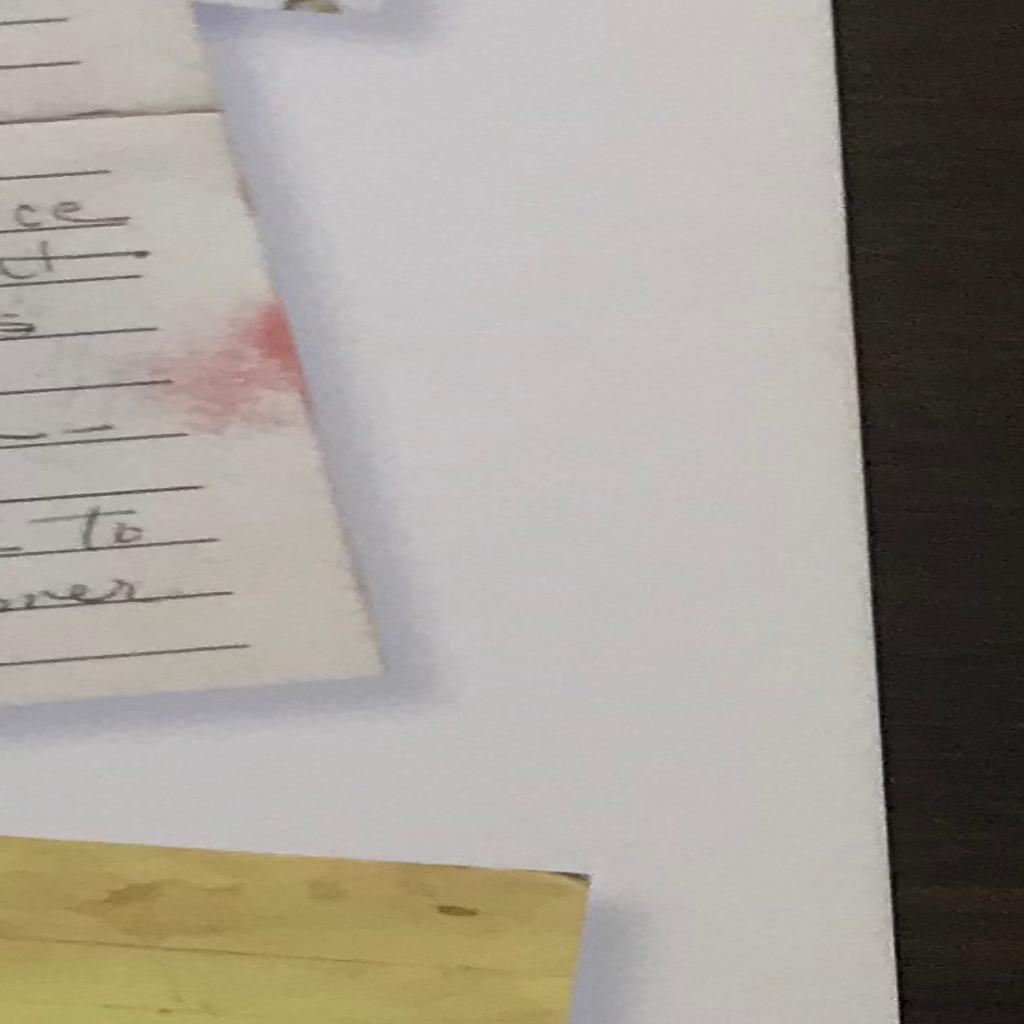 ce
at
s
to
oner